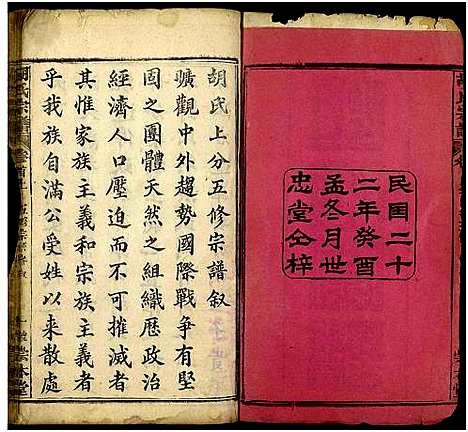 民国二十
二年癸酉
孟冬月世
忠堂仝梓
胡氏上分五修宗譜叙
曠觀中外趨勢國際戰爭有堅
固之團體天然之組織歷政治
經濟人口壓迫而不可摧滅者
其惟家族主義和宗族主義者
乎我族自滿公受姓以來散處